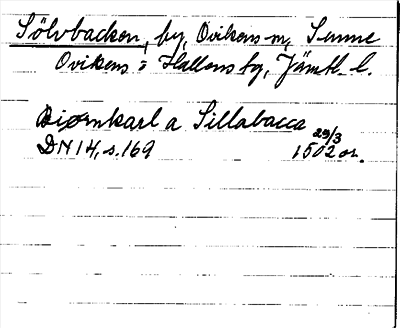 Sölvbacken, by, Ovikens sn,
Ovikens o Hallens tg, Jämtl. l.
Biørnkarl a Sillabacca
DN 14, s. 169 29/3 1502 or.